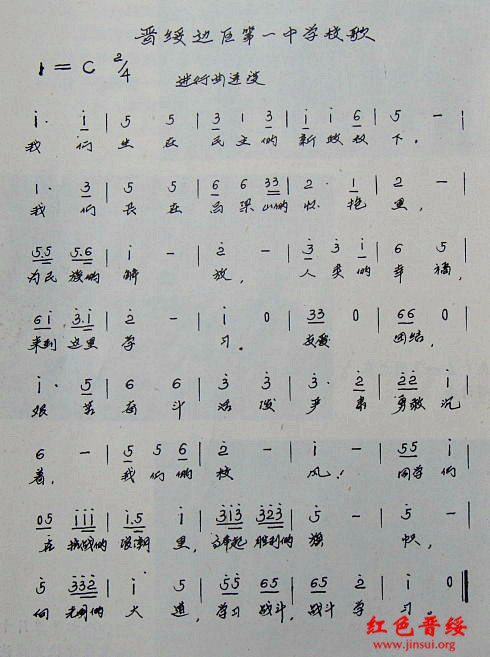 晋绥边区第一中学校歌
1 = C 2/4
进行曲速度
i· i | 5 5 | 3 1 3 | i i 6 | 5 — |
我们生在民主的新政权下,
1· 3 | 5 5 | 6 6 33 | 2· 1 | 2 — |
我们长在吕梁山的怀抱里,
5.5 5.6 | i — | 2 — | 3 3 i | 6 5 |
为民族的解放, 人类的幸福,
6i 3.i | 2 — | i 0 | 33 0 | 66 0 |
来到这里学习. 友爱 团结,
i· 5 | 6 6 | 3 3 | 3· 2 | 22 i |
艰苦奋斗活泼严肃勇敢沉
6 — | 5 5 6 | 2 — | i — | 55 i |
着, 我们的校风! 同学们
05 iii | i.5 i | 3i3 323 | 5 — | 5 — |
在抗战的浪潮里, 高举起胜利的旗帜,
5 332 | i· 5 | 55 65 | 65 2 | i 0 ‖
向光明的大道, 学习战斗, 战斗学习。
红色晋绥
www.jinsui.org